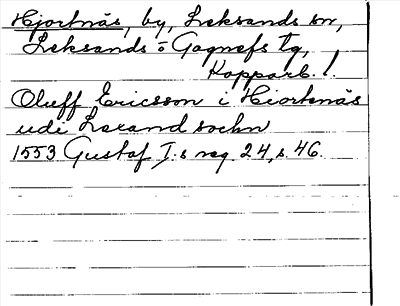 Hjortnäs, by, Leksands sn,
Leksands o Gagnefs tg,
Kopparb. l.
Oluff Ericsson i Hiortnäs
udi Lexand sochn
1553 Gustaf I:s reg 24, s. 46.